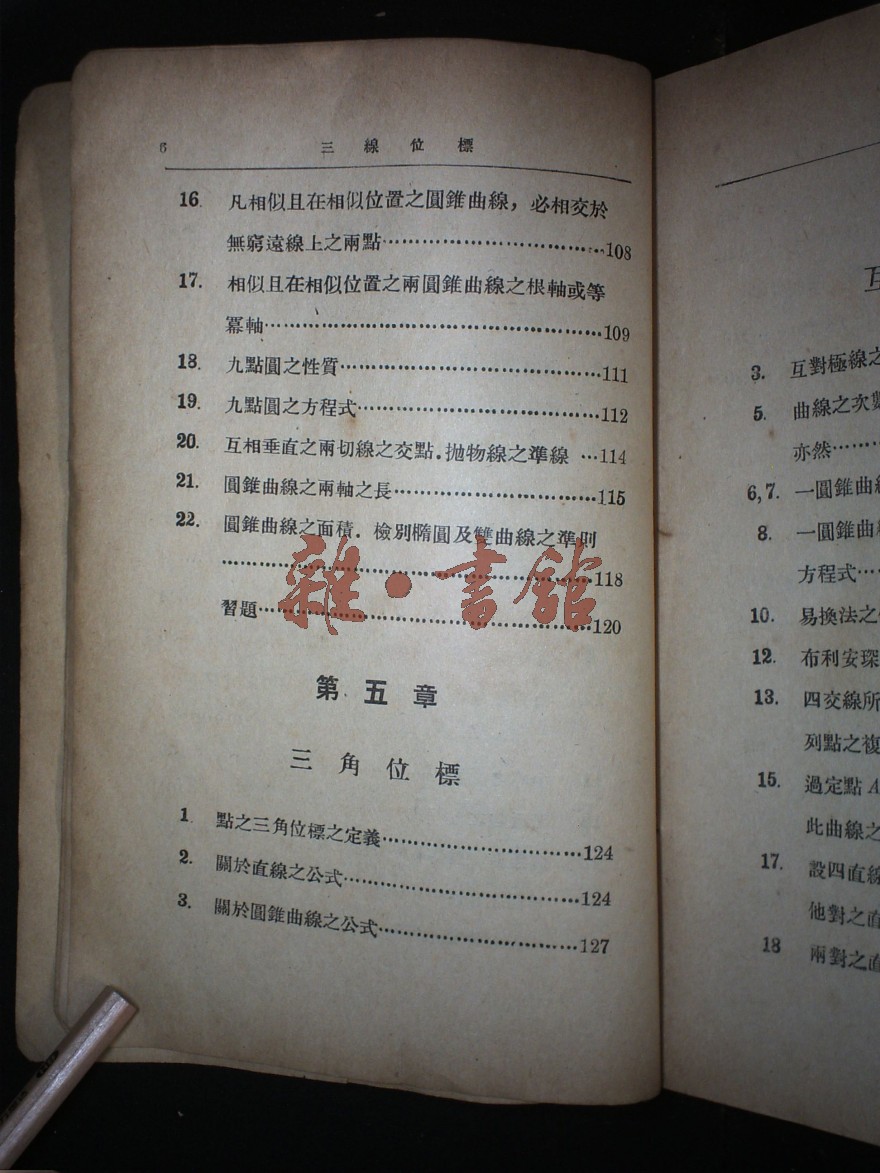 6 三線位標
16. 凡相似且在相似位置之圓錐曲線，必相交於
無窮遠線上之兩點…………………………108
17. 相似且在相似位置之兩圓錐曲線之根軸或等
冪軸…………………………………………109
18. 九點圓之性質………………………………111
19. 九點圓之方程式……………………………112
20. 互相垂直之兩切線之交點．拋物線之準線 …114
21. 圓錐曲線之兩軸之長………………………115
22. 圓錐曲線之面積．檢別橢圓及雙曲線之準則
………………………………………………118
習題…………………………………………120
雜·書館
第五章
三角位標
1. 點之三角位標之定義………………………124
2. 關於直線之公式……………………………124
3. 關於圓錐曲線之公式………………………127
互
3. 互對極線之
5. 曲線之次數
亦然………
6,7. 一圓錐曲線
8. 一圓錐曲
方程式…
10. 易換法之
12. 布利安琛
13. 四交線所
列點之複
15. 過定點 A
此曲線之
17. 設四直線
他對之直
18 兩對之直